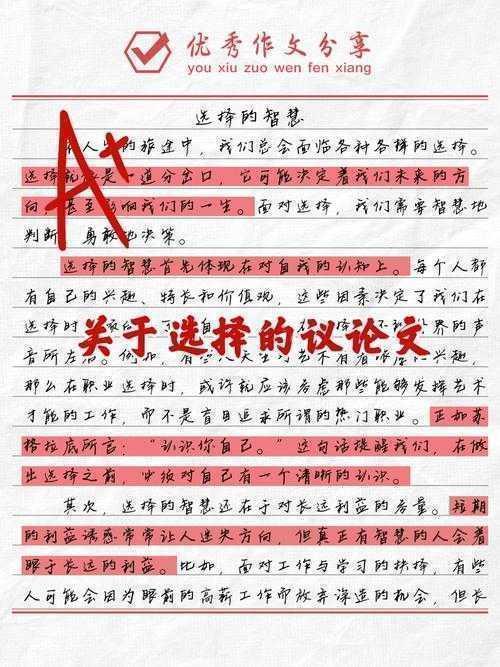 优秀作文分享
you xiu zuo wen fen xiang
A+
选择的智慧
人 的旅途中，我们总会面临各种各样的选择。
选择 是一道分岔口，它可能决定着我们未来的方
向，甚至影响我们的一生。面对选择，我们需要智慧地
判断，勇敢地决策。
选择的智慧首先体现在对自我的认知上。每个人都
有自己的兴趣、特长和价值观，这些因素决定了我们在
选择时 界的声
关于选择的议论文
音所左 兴趣，
那么在职业选择时，或许就应该考虑那些能够发挥艺术
才能的工作，而不是盲目追求所谓的热门职业。正如苏
格拉底所言："认识你自己。"这句话提醒我们，在做
出选择之前，必须对自己有一个清晰的认识。
其次，选择的智慧还在于对长远利益的考量。短期
的利益诱惑常常让人迷失方向，但真正有智慧的人会着
眼于长远的利益。比如，面对工作与学习的抉择，有些
人可能会因为眼前的高薪工作而放弃深造的机会，但长